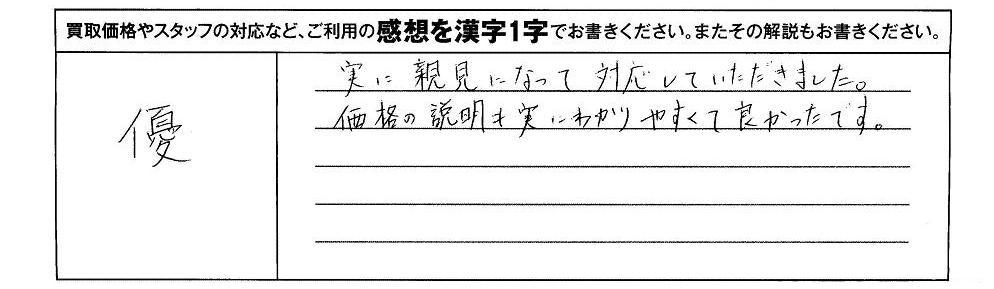 買取価格やスタッフの対応など、ご利用の感想を漢字1字でお書きください。またその解説もお書きください。
優
実に親見になって対応していただきました。
価格の説明も実にわかりやすくて良かったです。